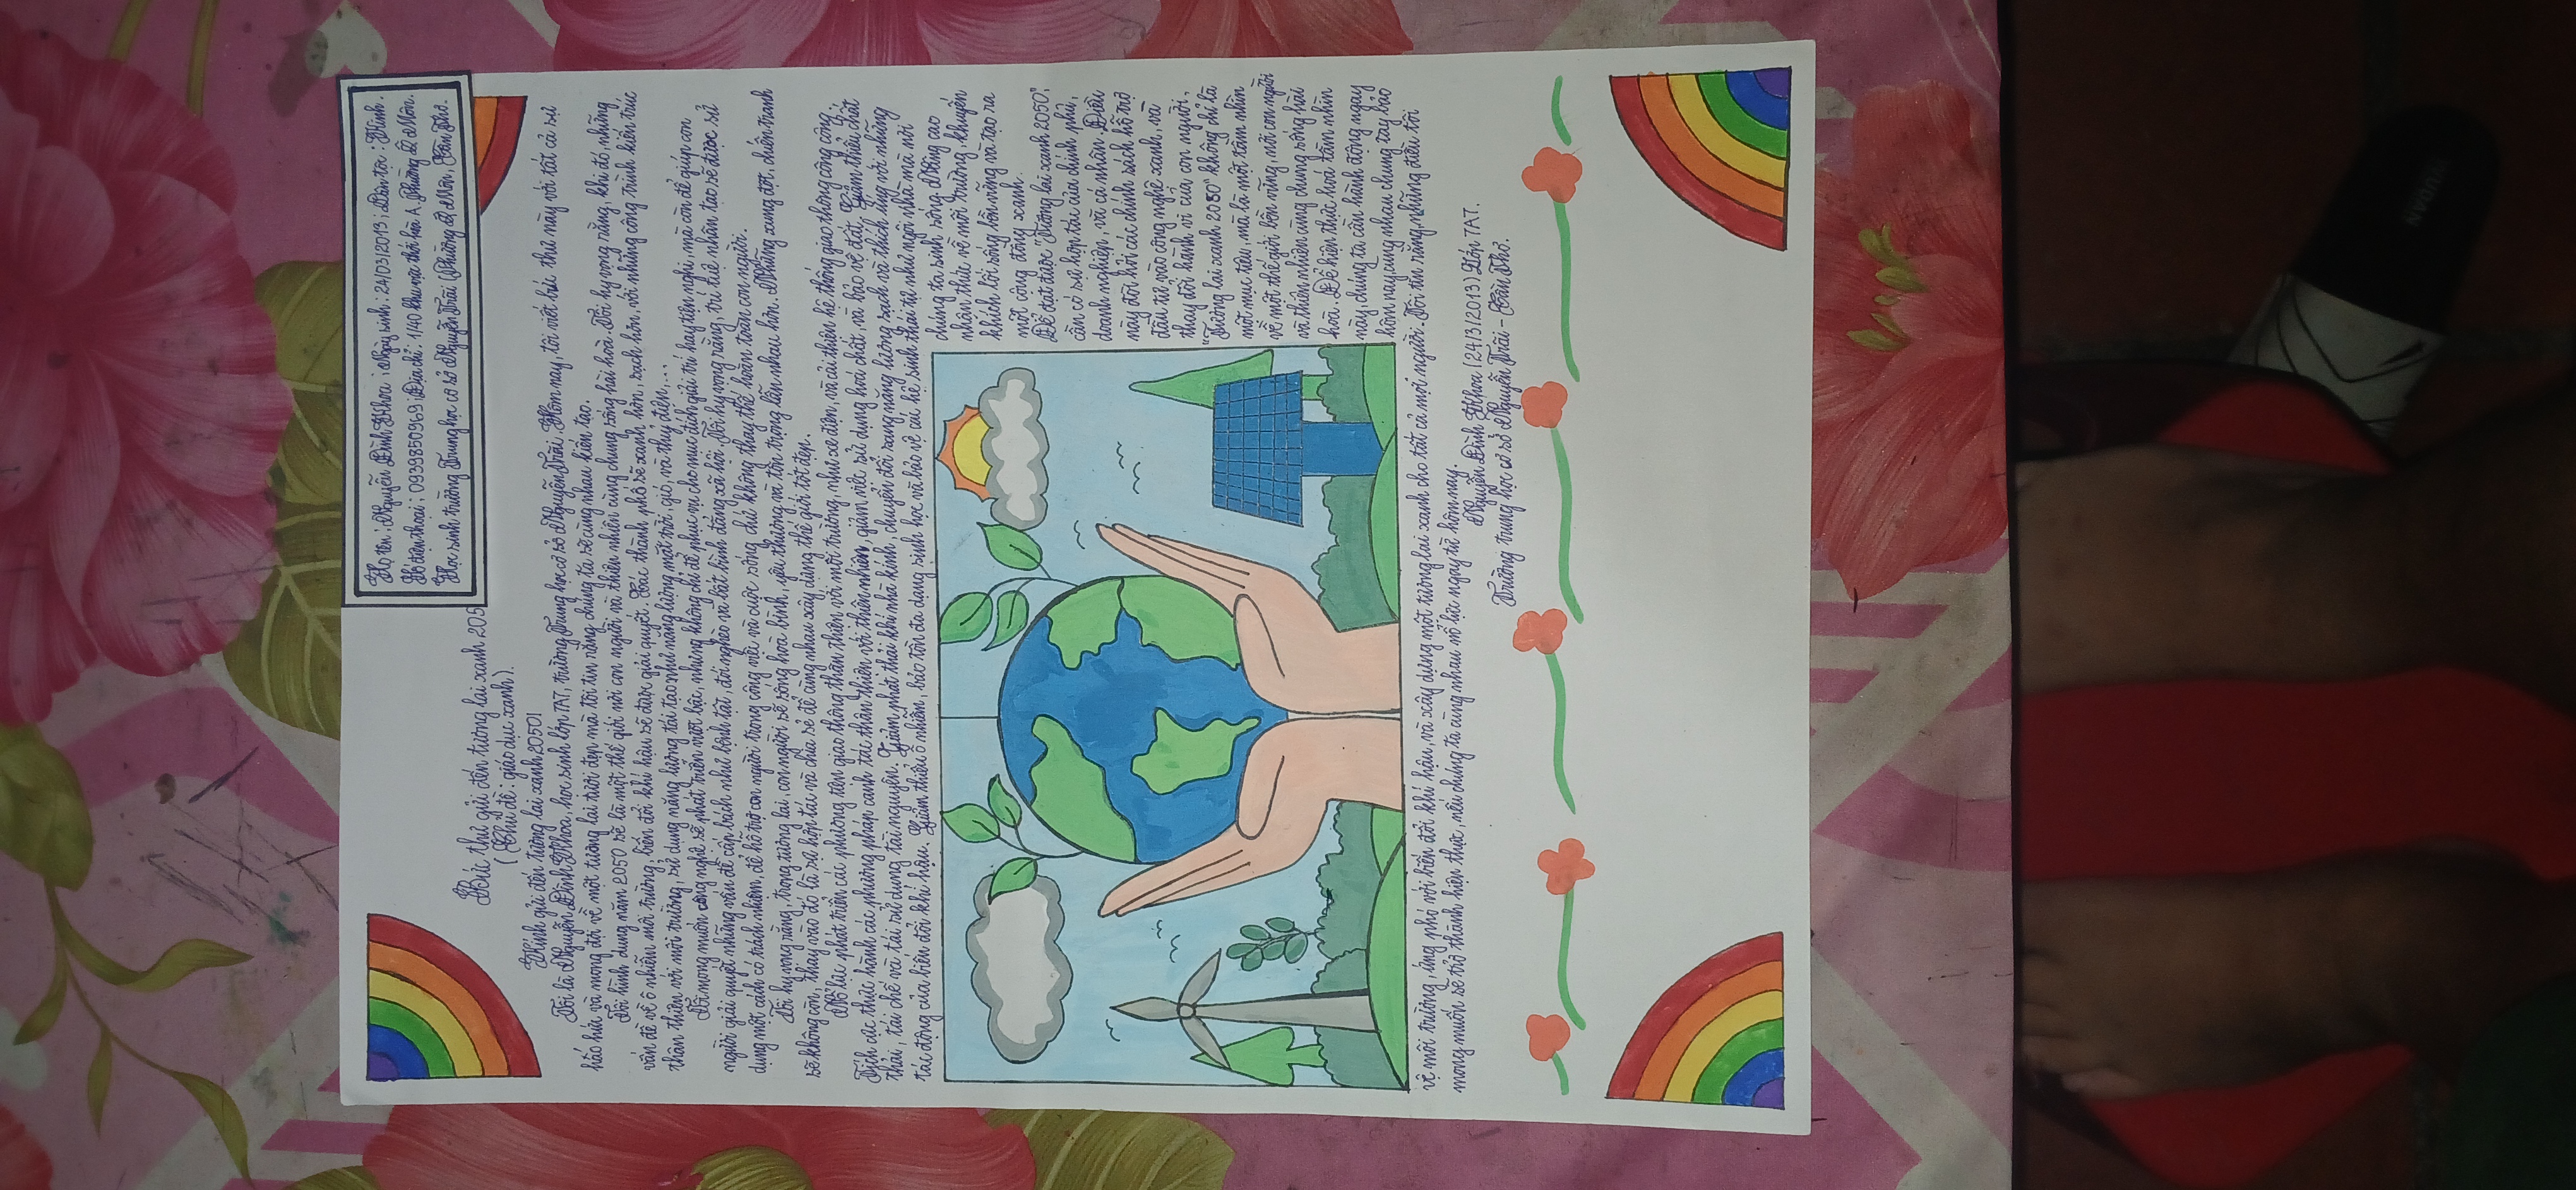 Họ tên: Nguyễn Đình Khoa; Ngày sinh: 24/03/2013; Dân tộc: Kinh.
Số điện thoại: 0939850969; Địa chỉ: 1/40 khu vực thới hòa A, Phường Ô Môn.
Học sinh trường Trung học cơ sở Nguyễn Trãi (Phường Ô Môn, Cần Thơ.
Bức thư gửi đến tương lai xanh 205
(Chủ đề: giáo dục xanh).
Kính gửi đến tương lai xanh 2050!
Tôi là Nguyễn Đình Khoa, học sinh lớp 7A7, trường Trung học cơ sở Nguyễn Trãi. Hôm nay, tôi viết bức thư này với tất cả sự
háo hức và mong đợi về một tương lai tươi đẹp mà tôi tin rằng chúng ta sẽ cùng nhau kiến tạo.
Tôi hình dung năm 2050 sẽ là một thế giới nơi con người và thiên nhiên cùng chung sống hài hoà. Tôi hy vọng rằng, khi đó, những
vấn đề về ô nhiễm môi trường, biến đổi khí hậu sẽ được giải quyết. Các thành phố sẽ xanh hơn, sạch hơn, với những công trình kiến trúc
thân thiện với môi trường, sử dụng năng lượng tái tạo như năng lượng mặt trời, gió, và thuỷ điện,...
Tôi mong muốn công nghệ sẽ phát triển vượt bậc, nhưng không chỉ để phục vụ cho mục đích giải trí hay tiện nghi, mà còn để giúp con
người giải quyết những vấn đề cấp bách như bệnh tật, đói nghèo và bất bình đẳng xã hội. Tôi hy vọng rằng, trí tuệ nhân tạo sẽ được sử
dụng một cách có trách nhiệm, để hỗ trợ con người trong công việc và cuộc sống chứ không thay thế hoàn toàn con người.
Tôi hy vọng rằng, trong tương lai, con người sẽ sống hoà bình, yêu thương và tôn trọng lẫn nhau hơn. Những xung đột, chiến tranh
sẽ không còn, thay vào đó là sự hợp tác và chia sẻ để cùng nhau xây dựng thế giới tốt đẹp.
Nỗ lực phát triển các phương tiện giao thông thân thiện với môi trường như xe điện, và cải thiện hệ thống giao thông công cộng
Tích cực thực hành các phương pháp canh tác thân thiện với thiên nhiên, giảm việc sử dụng hoá chất, và bảo vệ đất, Giảm thiểu chất
thải, tái chế và tái sử dụng tài nguyên. Giảm phát thải khí nhà kính, chuyển đổi sang năng lượng sạch và thích ứng với những
tác động của biến đổi khí hậu. Giảm thiểu ô nhiễm, bảo tồn đa dạng sinh học và bảo vệ các hệ sinh thái tự như ngôi nhà mà nơi
chúng ta sinh sống. Nâng cao
nhận thức về môi trường, khuyến
khích lối sống bền vững và tạo ra
một cộng đồng xanh.
Để đạt được "Tương lai xanh 2050",
cần có sự hợp tác của chính phủ,
doanh nghiệp, và cá nhân. Điều
này đòi hỏi các chính sách hỗ trợ
đầu tư vào công nghệ xanh, và
thay đổi hành vi của con người,
"Tương lai xanh 2050" không chỉ là
một mục tiêu, mà là một tầm nhìn
về một thế giới bền vững, nơi con người
và thiên nhiên cùng chung sống hài
hòa. Để hiện thực hoá tầm nhìn
này, chúng ta cần hành động ngay
hôm nay, cùng nhau chung tay bảo
vệ môi trường, ứng phó với biến đổi khí hậu, và xây dựng một tương lai xanh cho tất cả mọi người. Tôi tin rằng, những điều tôi
mong muốn sẽ trở thành hiện thực, nếu chúng ta cùng nhau nỗ lực ngay từ hôm nay.
Nguyễn Đình Khoa (24/3/2013) Lớp 7A7.
Trường trung học cơ sở Nguyễn Trãi - Cần Thơ.